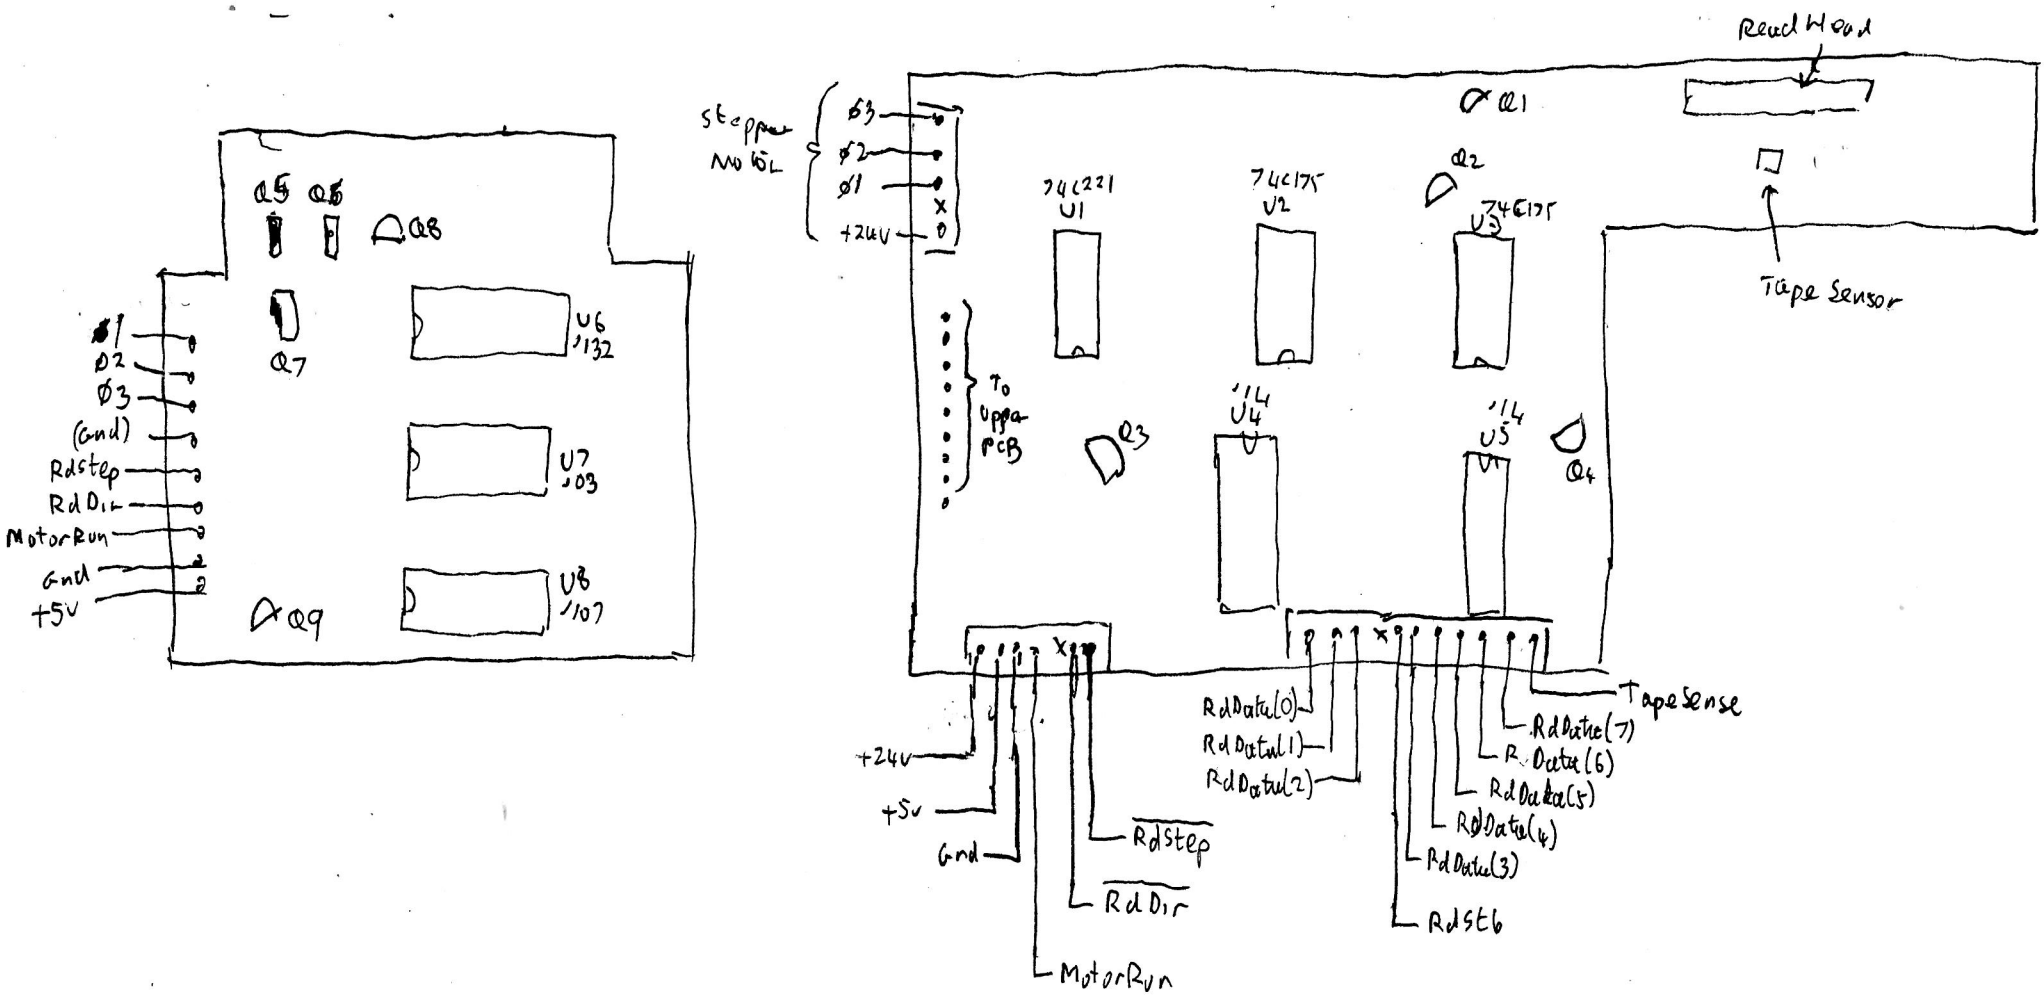 Q5 Q6
Q8
Q7
U6
'132
U7
'03
U8
'107
Q9
ø1
ø2
ø3
(Gnd)
RdStep
RdDir
MotorRun
Gnd
+5v
Stepper
Motor
ø3
ø2
ø1
x
+24v
To
Upper
PCB
74C221
U1
74C175
U2
74C175
U3
'14
U4
'14
U5
Q1
Q2
Q3
Q4
Read Head
Tape Sensor
x
+24v
+5v
Gnd
MotorRun
RdDir
RdStep
x
RdData(0)
RdData(1)
RdData(2)
RdStb
RdData(3)
RdData(4)
RdData(5)
RdData(6)
RdData(7)
TapeSense